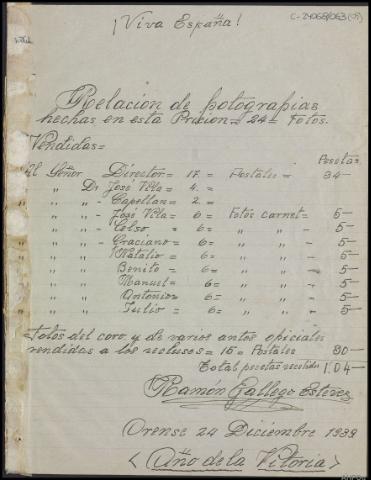 ¡Viva España!
C-24068/063
Relación de fotografias
hechas en esta Pricion = 24 = Fotos.
Vendidas =
Pesetas
Al Señor Director = 17 = Postales = 34 —
" " Dr José Vila = 4 = —
" " - Capellan = 2 = —
" " - José Vila = 6 = Fotos carnet = 5 —
" " - Celso = 6 = " " - 5 —
" " - Graciano = 6 = " " - 5 —
" " Natalio = 6 = " " - 5 —
" " Benito = 6 = " " - 5 —
" " Manuel = 6 = " " - 5 —
" " Antonio = 6 = " " - 5 —
" " Julio = 6 = " " - 5 —
Fotos del coro y de varios antos oficiales
vendidas a los reclusos = 15 = Postales 30 —
Total pesetas recibidas 1.04 —
Ramón Gallego Esteves
Orense 24 Diciembre 1939
< Año de la Vitoria >